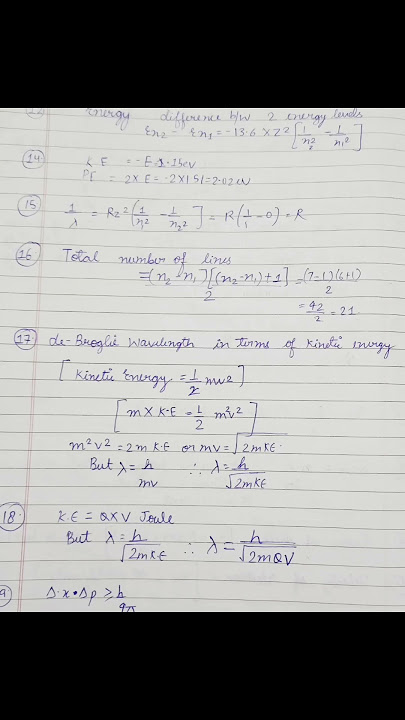 Energy difference b/w 2 energy levels
En2 - En1 = -13.6 × Z² [1/n₂² - 1/n₁²]
14 K.E = -E
PE = 2×E = -2×1.51 =
15 1/λ = RZ² (1/n₁² - 1/n₂²] = R(1/1 - 0) = R
16 Total number of lines
= (n₂ - n₁)[(n₂-n₁)+1]/2 = (7-1)(6+1)/2
= 42/2 = 21
17 de-Broglie wavelength in terms of kinetic energy
[Kinetic Energy = 1/2 mv²]
[m × K·E = 1/2 m²v²]
m²v² = 2m K·E or mv = √2mKE
But λ = h/mv ∴ λ = h/√2mKE
18 K·E = Q×V Joule
But λ = h/√2mK·E ∴ λ = h/√2mQV
Δx·Δp ≥ h/4π